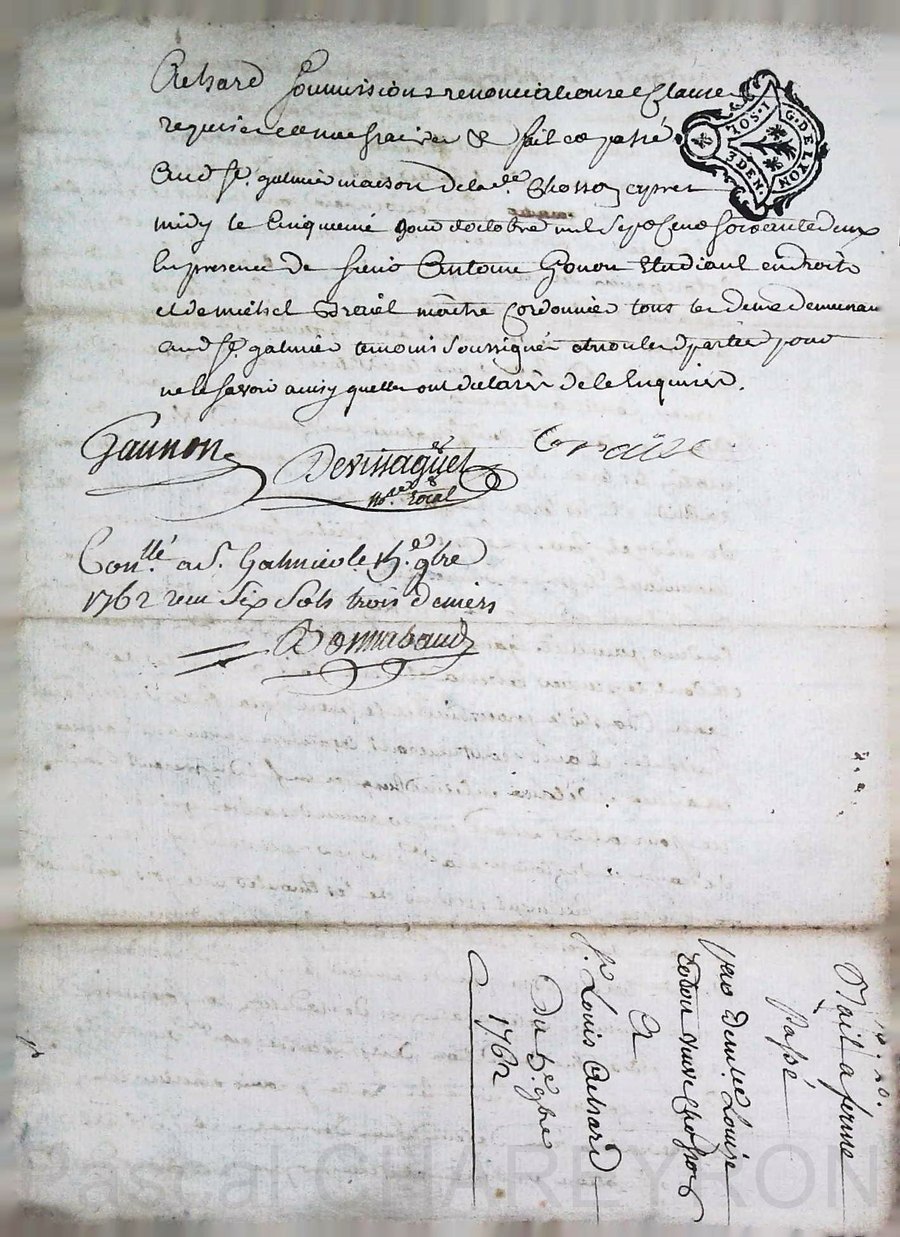 Achard Soumissions renonciations et Clause
requises et necessaires & fait et passé
Aud St. galmier maison de lade. Chosson apres
midy le Cinquieme jour doctobre mil Sept Cens soixante deux
En presence de Sieur Antoine Gonon Etudiant en droits
et de michel maitre Cordonnier tous les deux demeurant
aud St. galmier temoins Soussignés et non les parties pour
ne le Savoir ainsy quelles ont declaré de ce Enquises.
G. DE LYON
10S. 1
3 DEN.
Devissaguet
Nore. Royal
Conllé. a St. Galmier le 9bre
1762 reçu Six Sols trois Deniers
Bail a ferme
Passé
par Demlle Louise
veuve Chosson
A
Sr. Louis Achard
Du
1762
Pascal CHAREYRON